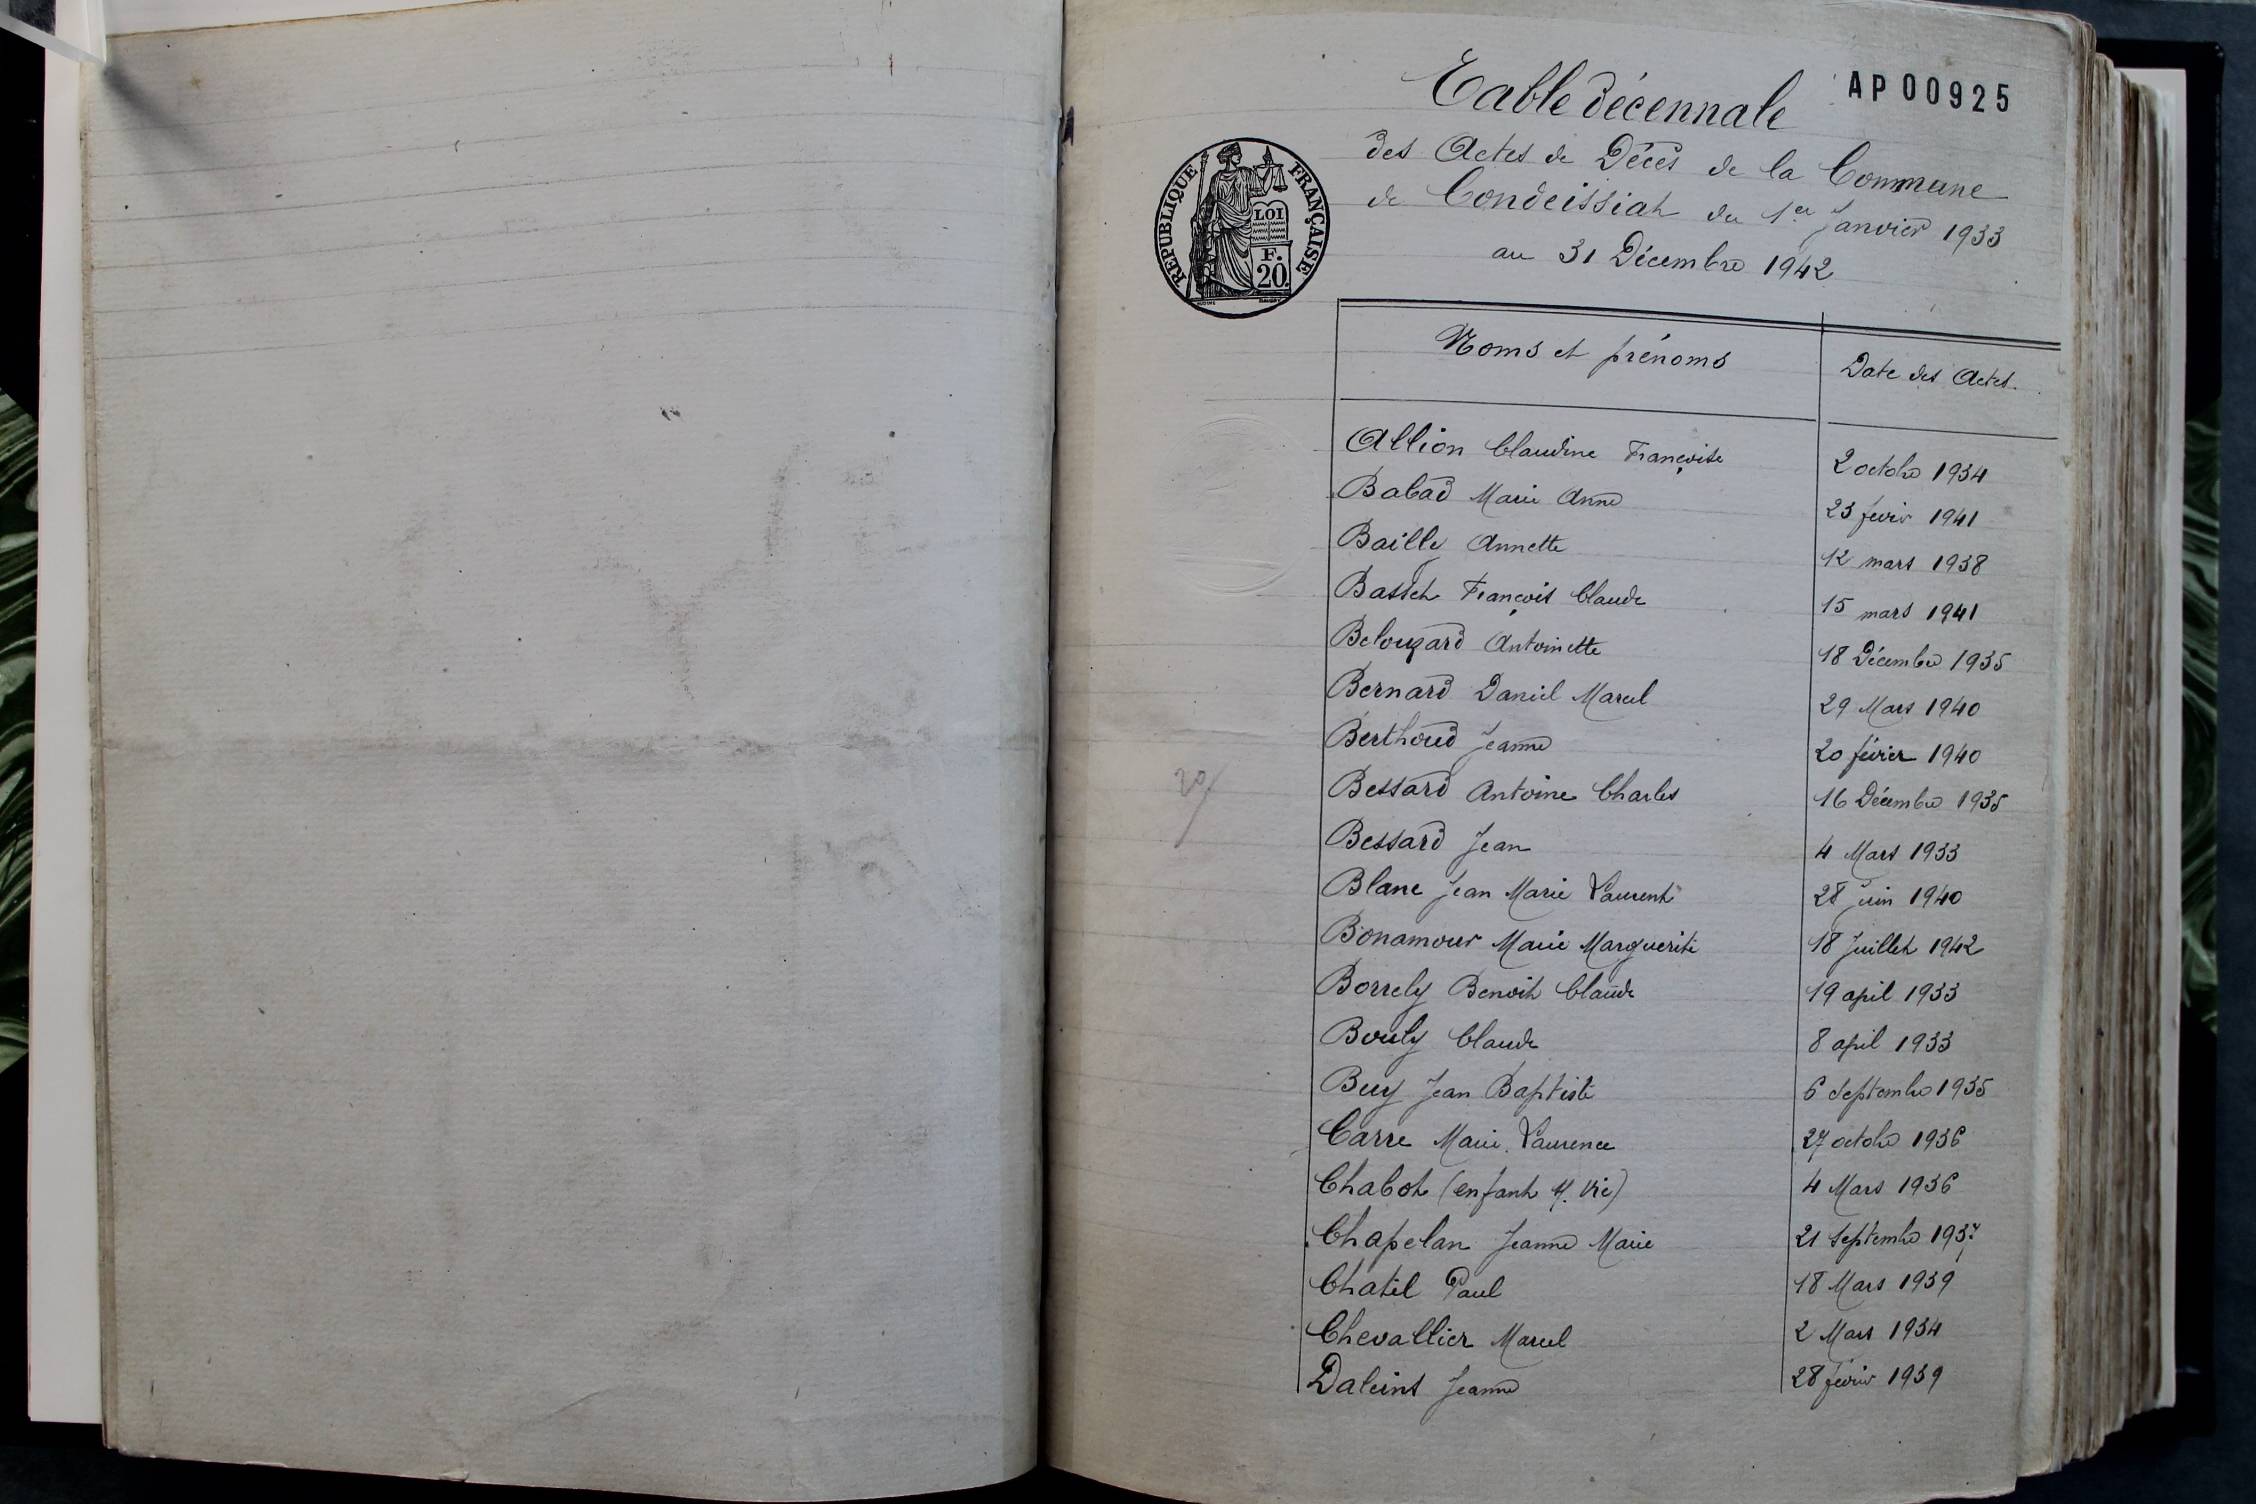 Table décennale
AP00925
des Actes de Décès de la Commune
de Condeissiat du 1er Janvier 1933
au 31 Décembre 1942
REPUBLIQUE FRANÇAISE
LOI
F.
20.
Noms et prénoms Date des Actes.
Allion Claudine Françoise 2 octobre 1934
Babad Marie Anne 23 février 1941
Bailly Annette 12 mars 1938
Basset François Claude 15 mars 1941
Belouzard Antoinette 18 Décembre 1935
Bernard Daniel Marcel 29 Mars 1940
Berthoud Jeanne 20 février 1940
Bessard Antoine Charles 16 Décembre 1935
Bessard Jean 4 Mars 1933
Blanc Jean Marie Laurent 28 juin 1940
Bonamour Marie Marguerite 18 Juillet 1942
Borrely Benoit Claude 19 april 1933
Bouly Claude 8 april 1933
Buy Jean Baptiste 6 septembre 1935
Carre Marie Laurence 27 octobre 1936
Chabot (enfant s. vie) 4 Mars 1936
Chapelan Jeanne Marie 21 septembre 1937
Chatel Paul 18 Mars 1939
Chevallier Marcel 2 Mars 1934
Daleins Jeanne 28 février 1939